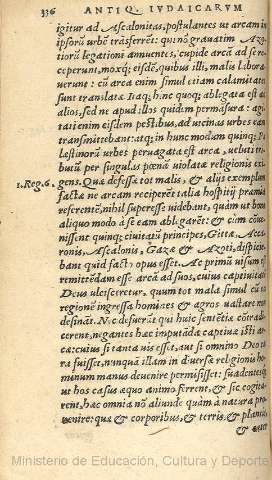 336 ANTIQ. IVDAICARVM
igitur ad Ascalonitas, postulantes ut arcam in
ipsorū urbē trāsferrēt: qui nō grauatim Azo
tiorū legationi annuentes, cupide arcā ad se re
ceperunt, moxq; eisdē, quibus illi, malis labora
uerunt: cū arca enim simul etiam calamitates
sunt translatæ. Itaq; hinc quoq; ablegata est ad
alios, sed ne apud illos quidem permāsura: agi
tati enim eisdem pestibus, ad uicinas urbes eam
transmittebant: atq; in hunc modum quinq; Pa
læstinorū urbes peruagata est arca, ueluti tri
butū per singulas pœnā uiolatæ religionis exi
1. Reg. 6. gens. Quæ defessæ tot malis, & alijs exemplum
factæ ne arcam reciperēt talia hospitij præmia
referentē, nihil superesse uidebant, quàm ut bono
aliquo modo à se eam ablegarēt: & cùm conue
nissent quinq; ciuitatū principes, Gittæ, Acca
ronis, Ascalonis, Gazæ & Azoti, dispicie
bant quid facto opus esset. Ac primū uisum est
remittēdam esse arcā ad suos, cuius captiuitatē
Deus ulcisceretur, quum tot mala simul cū ea
regionē ingressa homines & agros uastare non
desināt. Nec defuerāt qui huic sentētiæ cōtradi
cerent, negantes hæc imputāda captiuæ isti ar
cæ: cuius si tanta uis esset, aut si omnino Deo cu
ræ fuisset, nunquā illam in diuersæ religionis ho
minum manus deuenire permisisset: suadentes
ut hos casus æquo animo ferrent, & sic cogita
rent, hæc omnia nō aliunde quàm à natura pro
uenire: quæ & corporibus, & terris, & plantis,
Ministerio de Educación, Cultura y Deporte